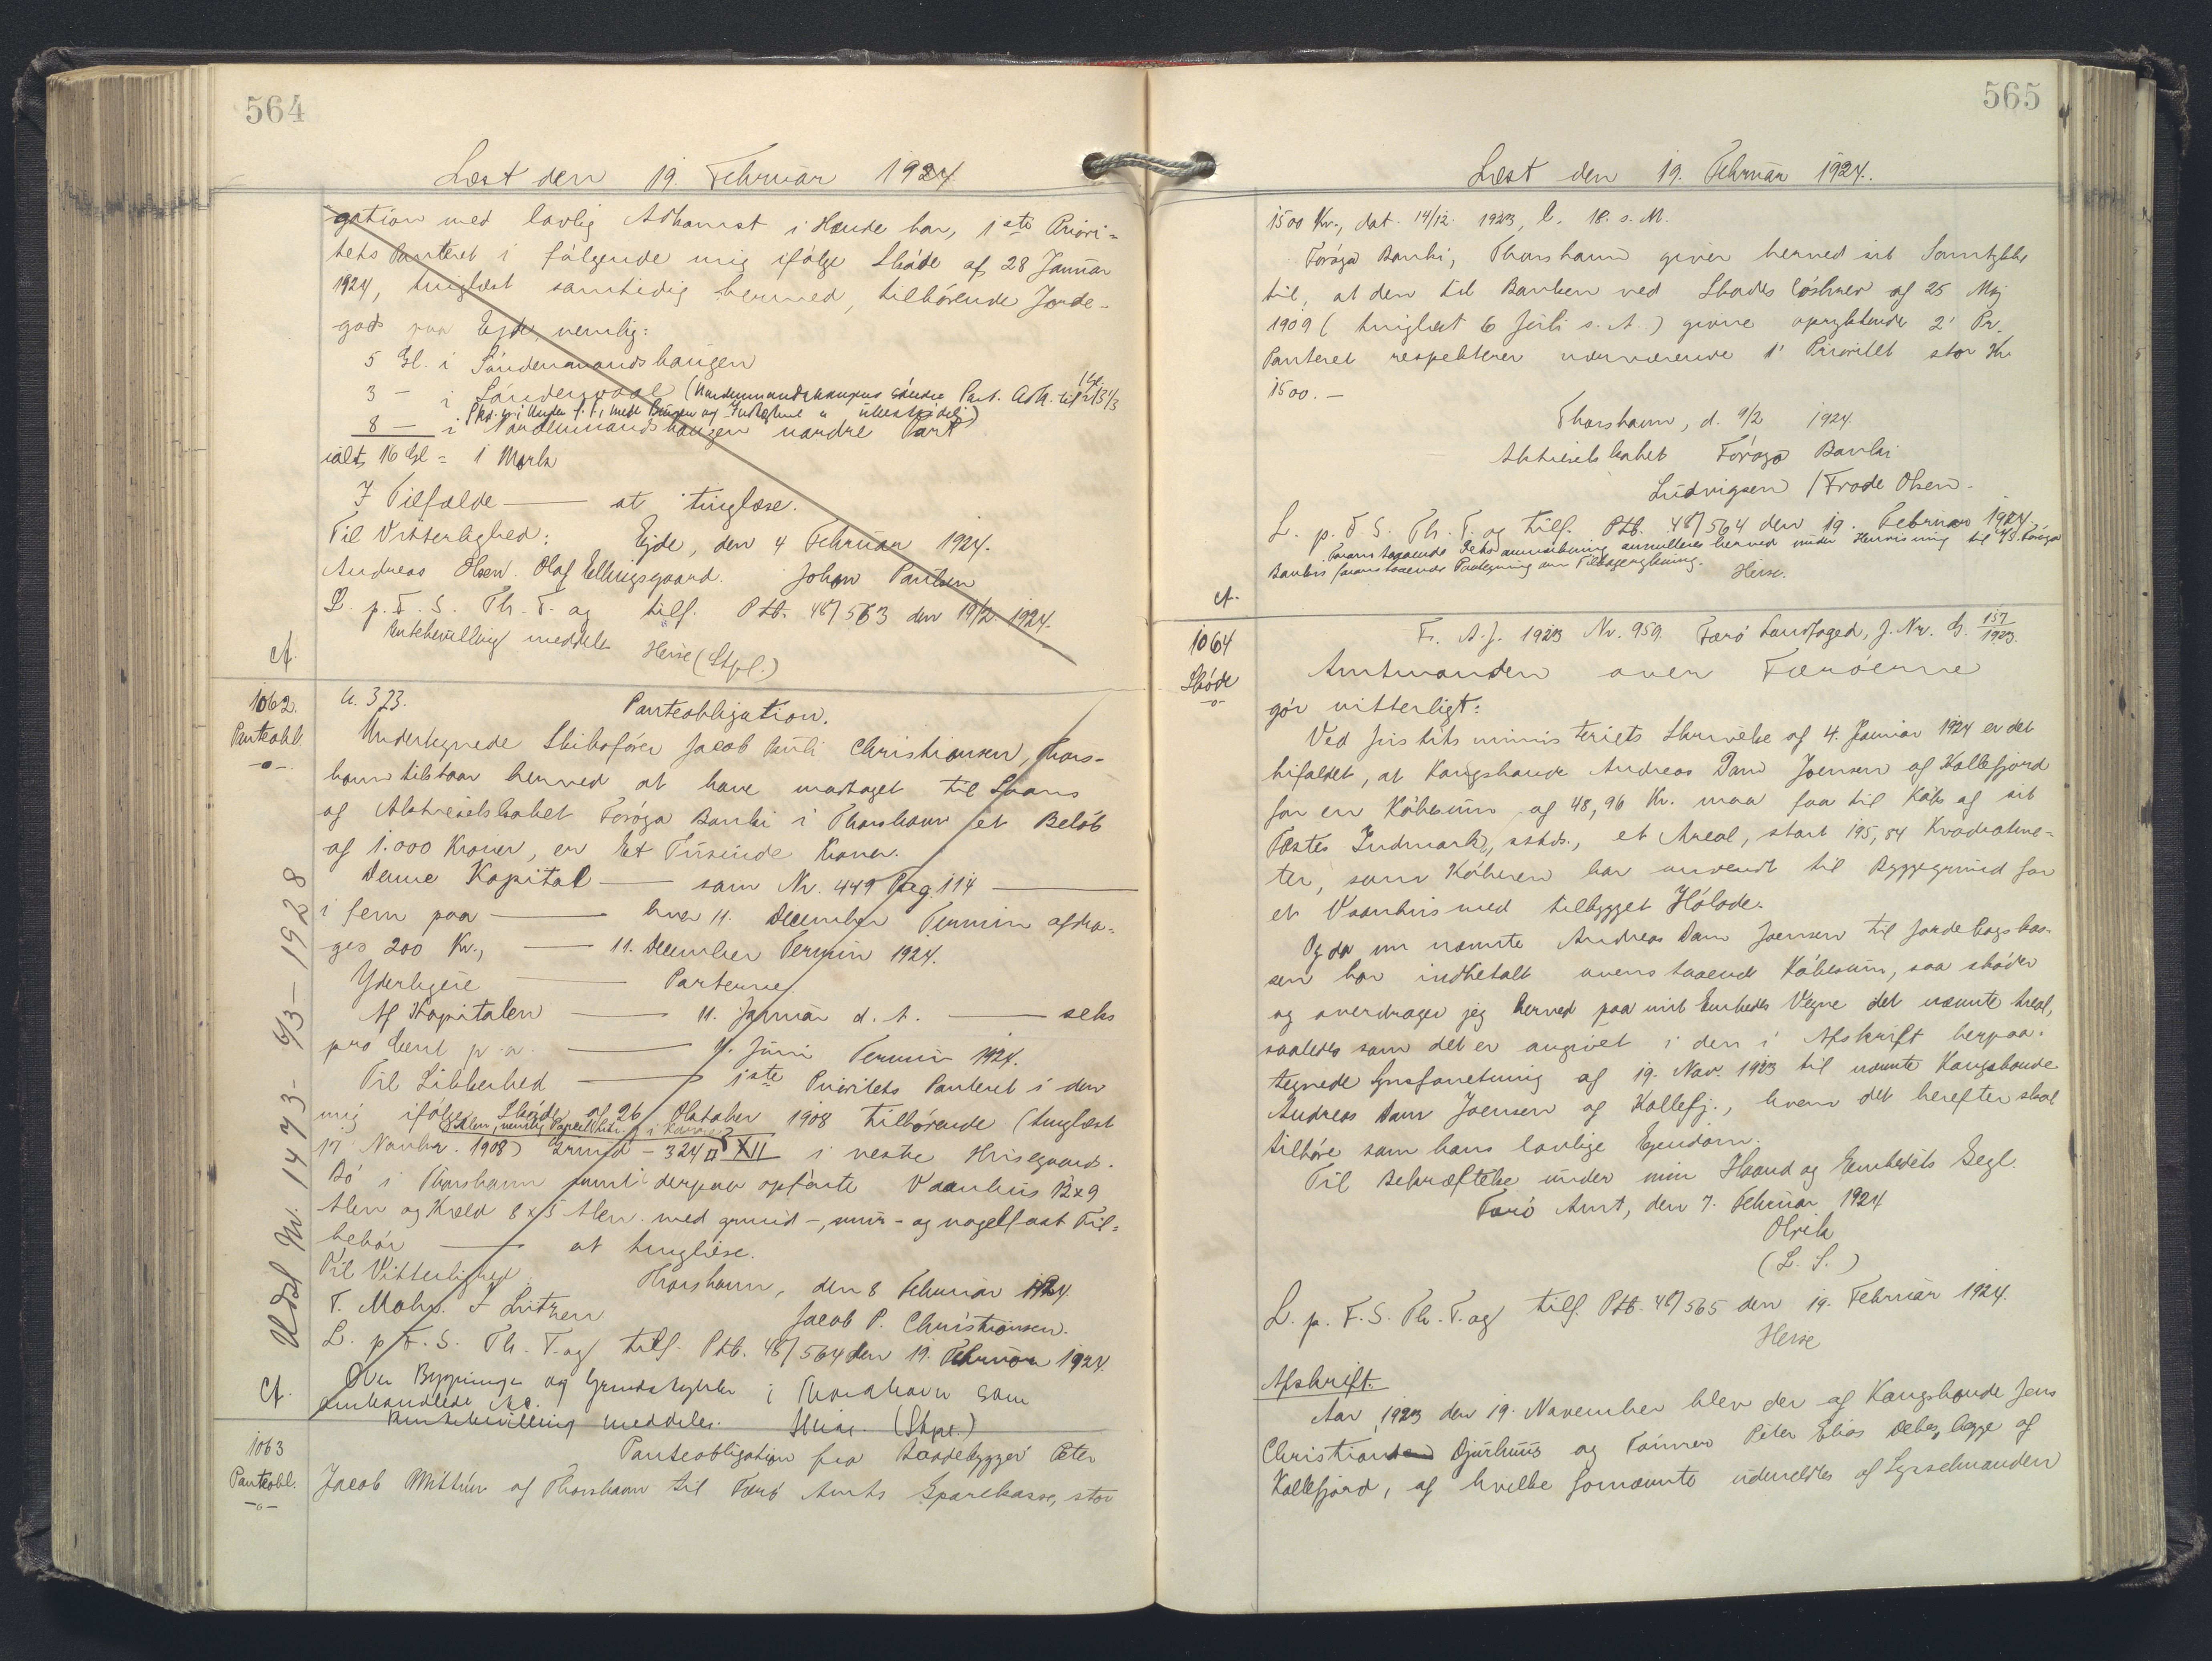 564
Læst den 19. Februar 1924
gation med lovlig Adkomst i Hænde har, 1ste Priori=
tets Panteret i følgende mig ifølge Skøde af 28 Januar
1924, tinglæst samtidig hermed, tilhørende Jorde-
gods paa Ejde, nemlig:
5 Gl. i Søndenmandshaugen
3 — i
8 — i Nordenmandshaugen nordre Part
ialt 16 Gl = 1 Mark
I Tilfælde — at tinglæse.
Til Vitterlighed: Ejde, den 4 Februar 1924.
Andreas Olsen. Olaf Ellingsgaard. Johan Paulsen
L. p. F. S. Th. T. og tilf. Ptb. 48/563 den 19/2 1924.
meddelt Heise (Stpl.)
A.
1062.
Panteobl.
-o-
A. 373. Panteobligation.
Undertegnede Skibsfører Jacob Pauli Christiansen, Thors-
havn tilstaar herved at have modtaget til Laans
af Aktieselskabet Føroya Banki i Thorshavn et Beløb
af 1.000 Kroner, er Et Tusinde Kroner.
Denne Kapital — som Nr. 449 Pag. 114 —
i fem paa — hver 11. December Termin afdra=
ges 200 Kr., — 11. December Termin 1924.
Yderligere — Parterne.
Af Kapitalen — 11. Januar d. A. — seks
pro Cent p. a. — 11. Juni Termin 1924.
Til Sikkerhed — 1ste Prioritets Panteret i den
mig ifølge Skøde af 26 Oktober 1908 tilhørende (tinglæst
17 Novbr. 1908) Grund — 324 □ XII i vestre Hrisegaard.
Bø i Thorshavn samt derpaa opførte Vaanhus 12x9
Alen og Kæld 8x5 Alen med grund-, mur- og nagelfast Til=
behør — at tinglæse.
Til Vitterlighed. Thorshavn, den 8 Februar 1924.
T. Mohr. J Lützen Jacob P. Christiansen.
L. p. F. S. Th. T. og tilf. Ptb. 48/564 den 19. Februar 1924.
A.
Om Bygninger og Grundstykker i Thorshavn som
omhandlede
meddeles. Heise. (Stpl.)
Udsl Nr. 1473 - 6/3 — 1928
1063
Panteobl.
-o-
Panteobligation fra Baadebygger Peter
Jacob Mittún af Thorshavn til Færø Amts Sparekasse, stor
565
Læst den 19. Februar 1924.
1500 Kr., dat. 14/12 1923, l. 18. s. M.
Føroya Banki, Thorshavn giver herved sit Samtykke
til, at den til Banken ved Skadesløsbrev af 25 Maj
1909 (tinglæst 6 Juli s. A.) givne oprykkende 2' Pr.
Panteret respekterer nærværende 1' Prioritet stor Kr
1500. —
Thorshavn, d. 9/2 1924.
Aktieselskabet Føroya Banki
Ludvigsen / Frode Olsen.
L. p. F. S. Th. T. og tilf. Ptb. 48/564 den 19. Februar 1924.
Foranstaaende annulleres herved under Henvisning til A/S. Føroya
Bankis foranstaaende Paategning om
Heise.
A.
1064
Skøde
-o-
F. A. J. 1923 Nr. 959. Færø Landfoged, J. Nr. G. 157/1923.
Amtmanden over Færøerne
gør vitterligt:
Ved Justitsministeriets Skrivelse af 4. Januar 1924 er det
bifaldet, at Kongsbonde Andreas Dam Joensen af Kollefjord
for en Købesum af 48,96 Kr. maa faa til Køb af sit
Fæstes Indmark, sstds., et Areal, stort 195,84 Kvadratme-
ter, som Køberen har anvendt til Byggegrund for
et Vaanhus med tilbygget Hølade.
Og da nu nævnte Andreas Dam Joensen til Jordebogskas-
sen har indbetalt ovenstaaende Købesum, saa skøder
og overdrager jeg herved paa mit Embeds Vegne det nævnte Areal,
saaledes som det er angivet i den i Afskrift herpaa-
tegnede Synsforretning af 19. Nov. 1923 til nævnte Kongsbonde
Andreas Dam Joensen af Kollefj., hvem det herefter skal
tilhøre som hans lovlige Ejendom.
Til Bekræftelse under min Haand og Embedets Segl.
Færø Amt, den 7. Februar 1924
Olrik
(L. S.)
L. p. F. S. Th. T. og tilf. Ptb. 48/565 den 19. Februar 1924.
Heise
Afskrift.
Aar 1923 den 19. November blev der af Kongsbonde Jens
Christian Djurhuus og Tømrer Peter Elias Debes, begge af
Kollefjord, af hvilke førnævnte udmeldtes af Sysselmanden